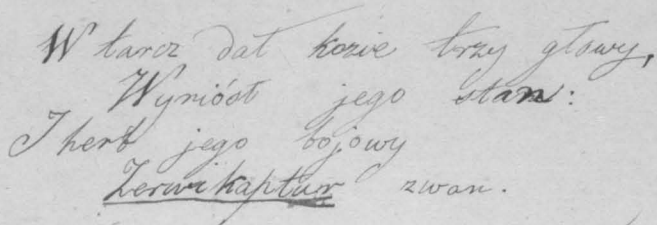 W tarcz dał kozie trzy głowy,
Wyniósł jego stan:
I herb jego bojowy
Zerwikaptur zwan.